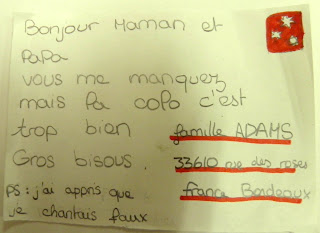 Bonjour Maman et
PaPa
vous me manquez
mais la colo c'est
trop bien
Gros bisous.
PS : j'ai appris que
je chantais faux
famille ADAMS
33610 rue des roses
france Bordeaux